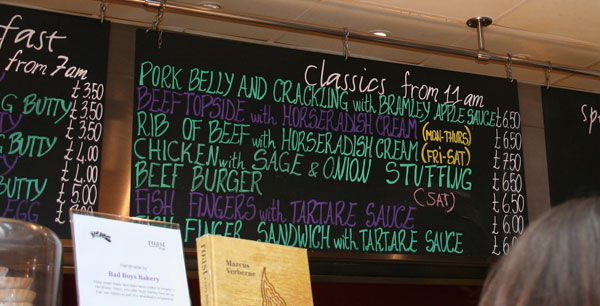 fast
from 7am
£3.50
£3.50
BUTTY £3.50
£4.00
BUTTY £4.00
£5.00
EGG £5.00
Classics from 11am
PORK BELLY AND CRACKLING with BRAMLEY APPLE SAUCE £6.50
BEEF TOPSIDE with HORSERADISH CREAM (MON-THURS) £6.50
RIB OF BEEF with HORSERADISH CREAM (FRI-SAT) £7.50
CHICKEN with SAGE & ONION STUFFING £6.50
BEEF BURGER (SAT) £6.50
FISH FINGERS with TARTARE SAUCE £6.00
FISH FINGER SANDWICH with TARTARE SAUCE £6.50
Sp
roast
Handmade by
Bad Boys Bakery
ROAST
Marcus
Verberne